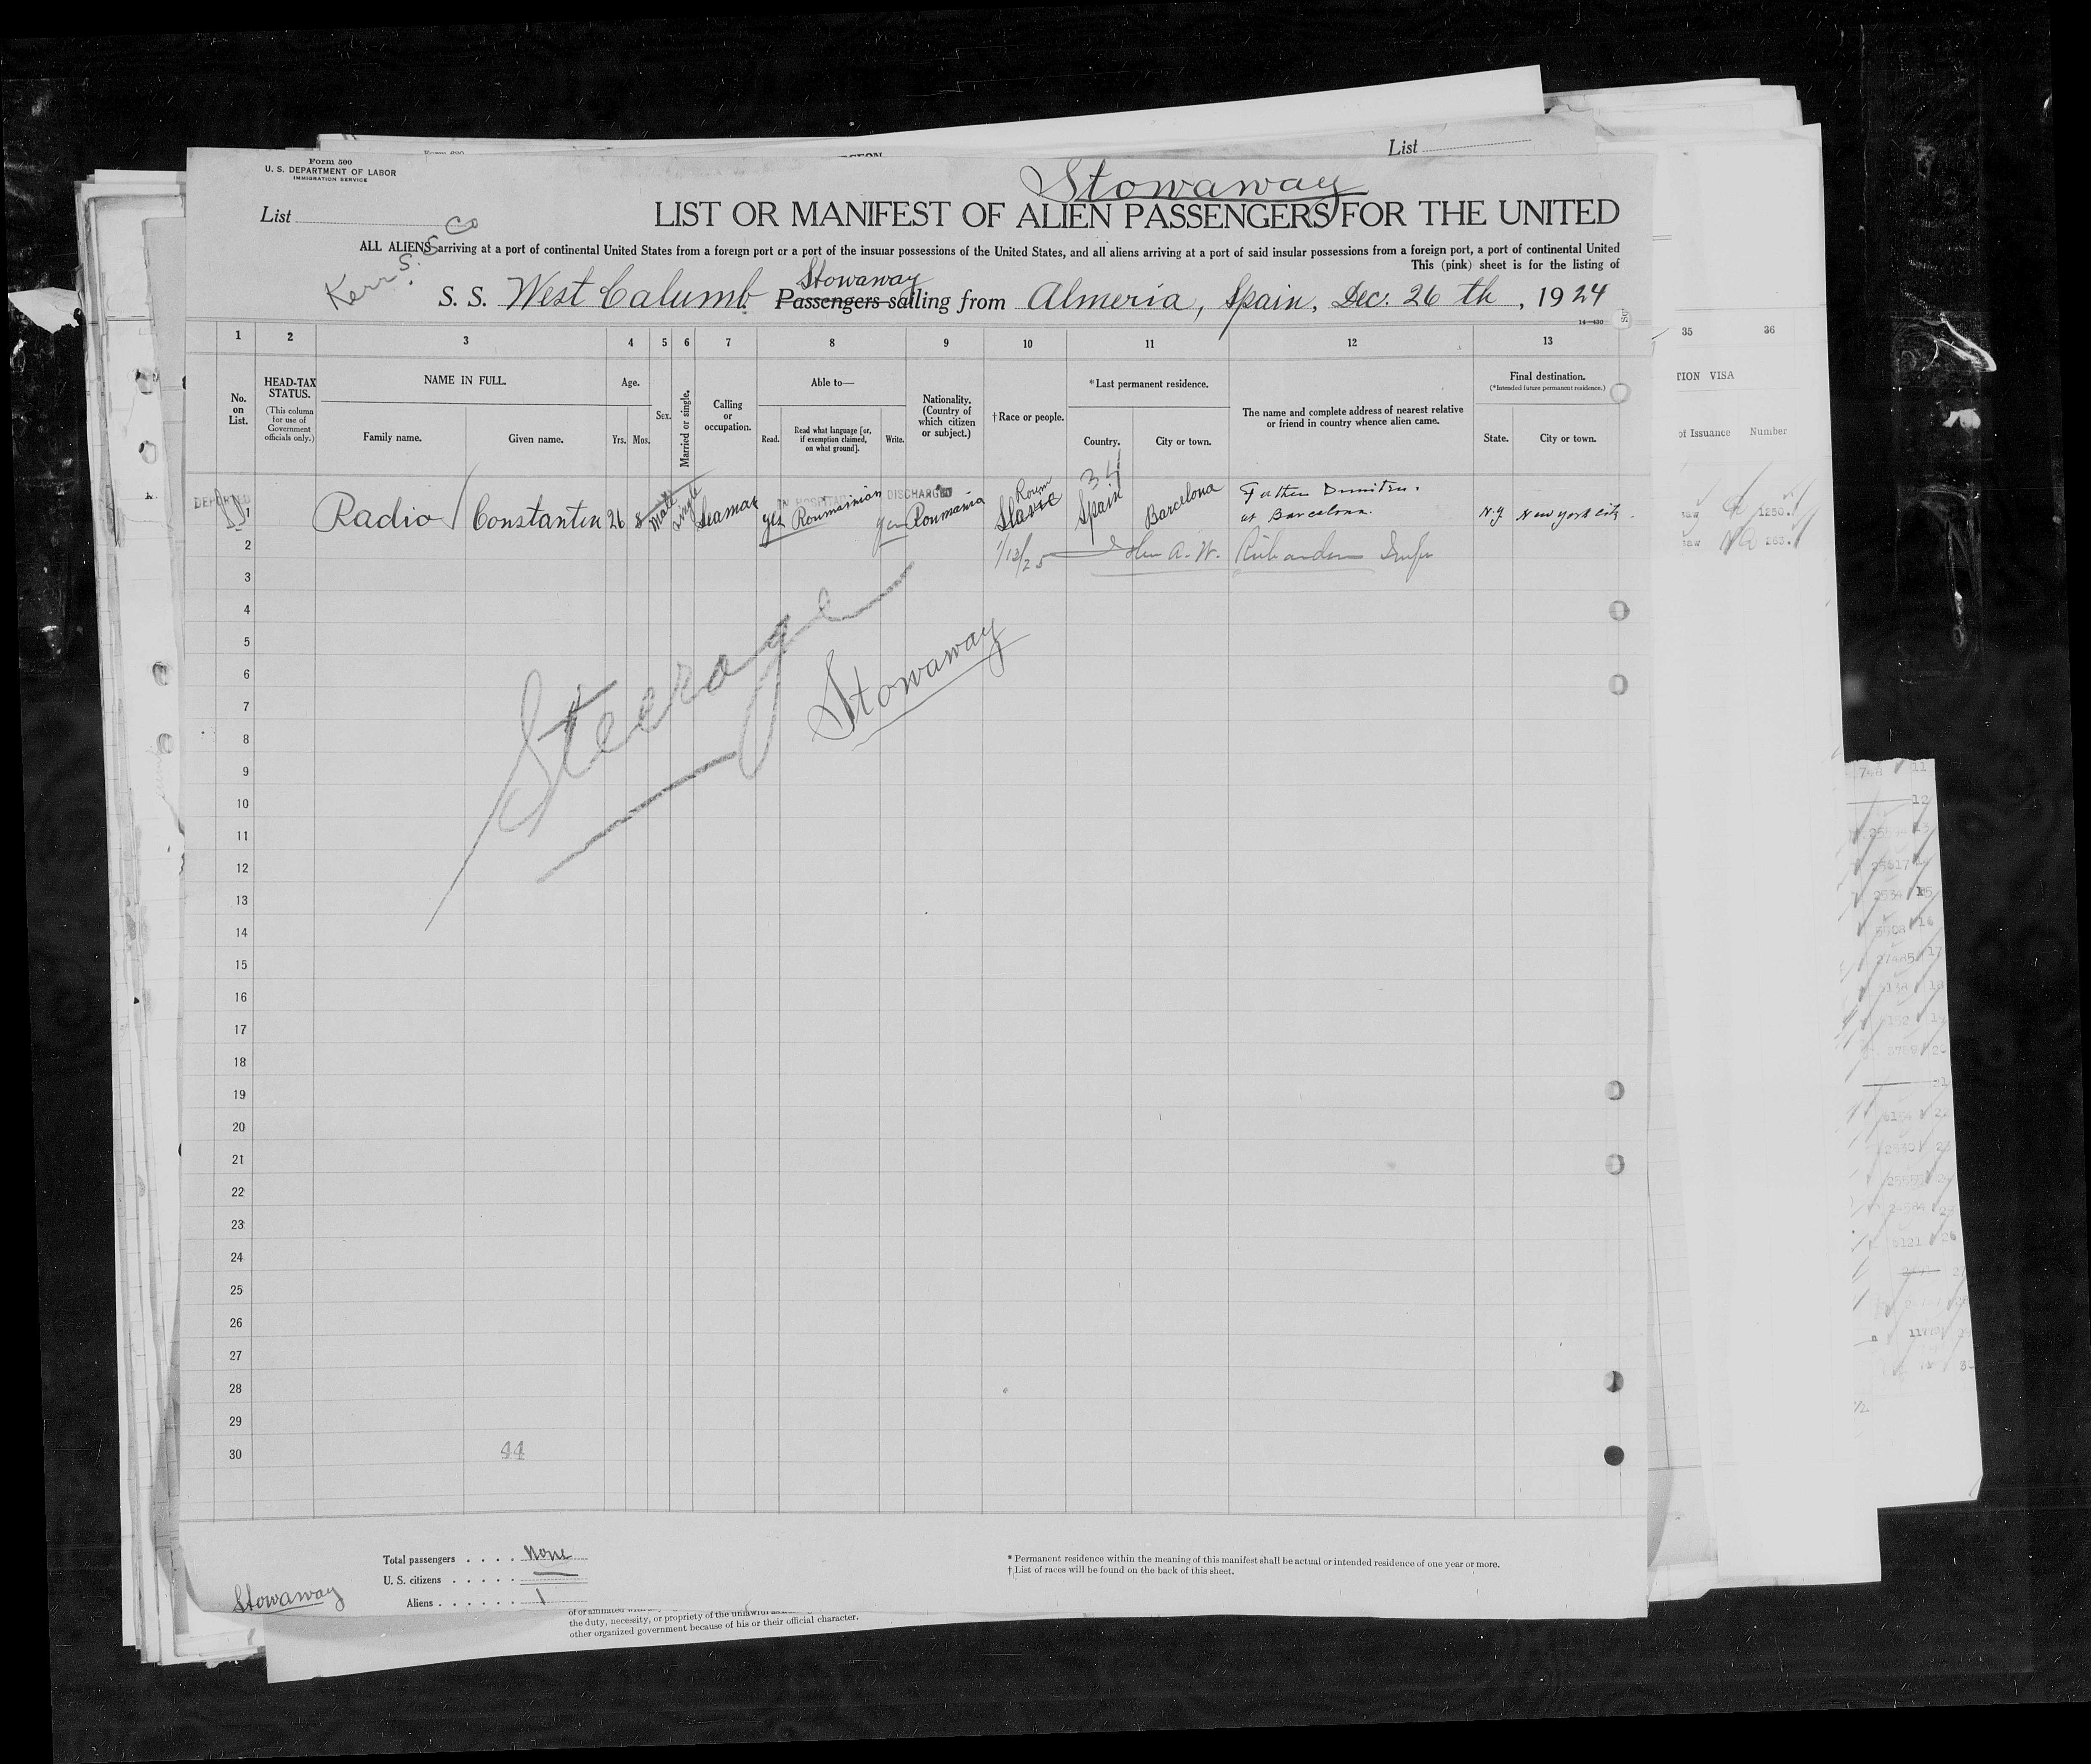 List
Form 500
U. S. DEPARTMENT OF LABOR
IMMIGRATION SERVICE
Stowaway
List
LIST OR MANIFEST OF ALIEN PASSENGERS FOR THE UNITED
ALL ALIENS arriving at a port of continental United States from a foreign port or a port of the insular possessions of the United States, and all aliens arriving at a port of said insular possessions from a foreign port, a port of continental United
This (pink) sheet is for the listing of
Kerr S. S. Co
Stowaway
S. S. West Calumb Passengers sailing from Almeria, Spain, Dec. 26 th, 1924
1 2 3 4 5 6 7 8 9 10 11 12 13
35 36
No. on List.
HEAD-TAX STATUS.
(This column for use of Government officials only.)
NAME IN FULL.
Family name.
Given name.
Age.
Yrs. Mos.
Sex.
Married or single.
Calling or occupation.
Able to—
Read.
Read what language [or, if exemption claimed, on what ground].
Write.
Nationality. (Country of which citizen or subject.)
†Race or people.
*Last permanent residence.
Country.
City or town.
The name and complete address of nearest relative or friend in country whence alien came.
Final destination.
(*Intended future permanent residence.)
State.
City or town.
TION VISA
of Issuance Number
DEPORTED
IN HOSPITAL DISCHARGED
Roum
34
1 Radio Constantin 26 male single Seaman yes Roumainian yes Roumania Slavic Spain Barcelona Father Dumitru. at Barcelona. N.Y New york city.
1250.
2 1/13/25 A. W. Richardson
263.
3
4
Steerage
5
Stowaway
6
7
8
9
10
11
12
13
14
15
16
17
18
19
20
21
22
23
24
25
26
27
28
29
30
44
Total passengers . . . . None
U. S. citizens . . . . .
Aliens . . . . . . 1
Stowaway
* Permanent residence within the meaning of this manifest shall be actual or intended residence of one year or more.
† List of races will be found on the back of this sheet.
the duty, necessity, or propriety of the unlawful
other organized government because of his or their official character.